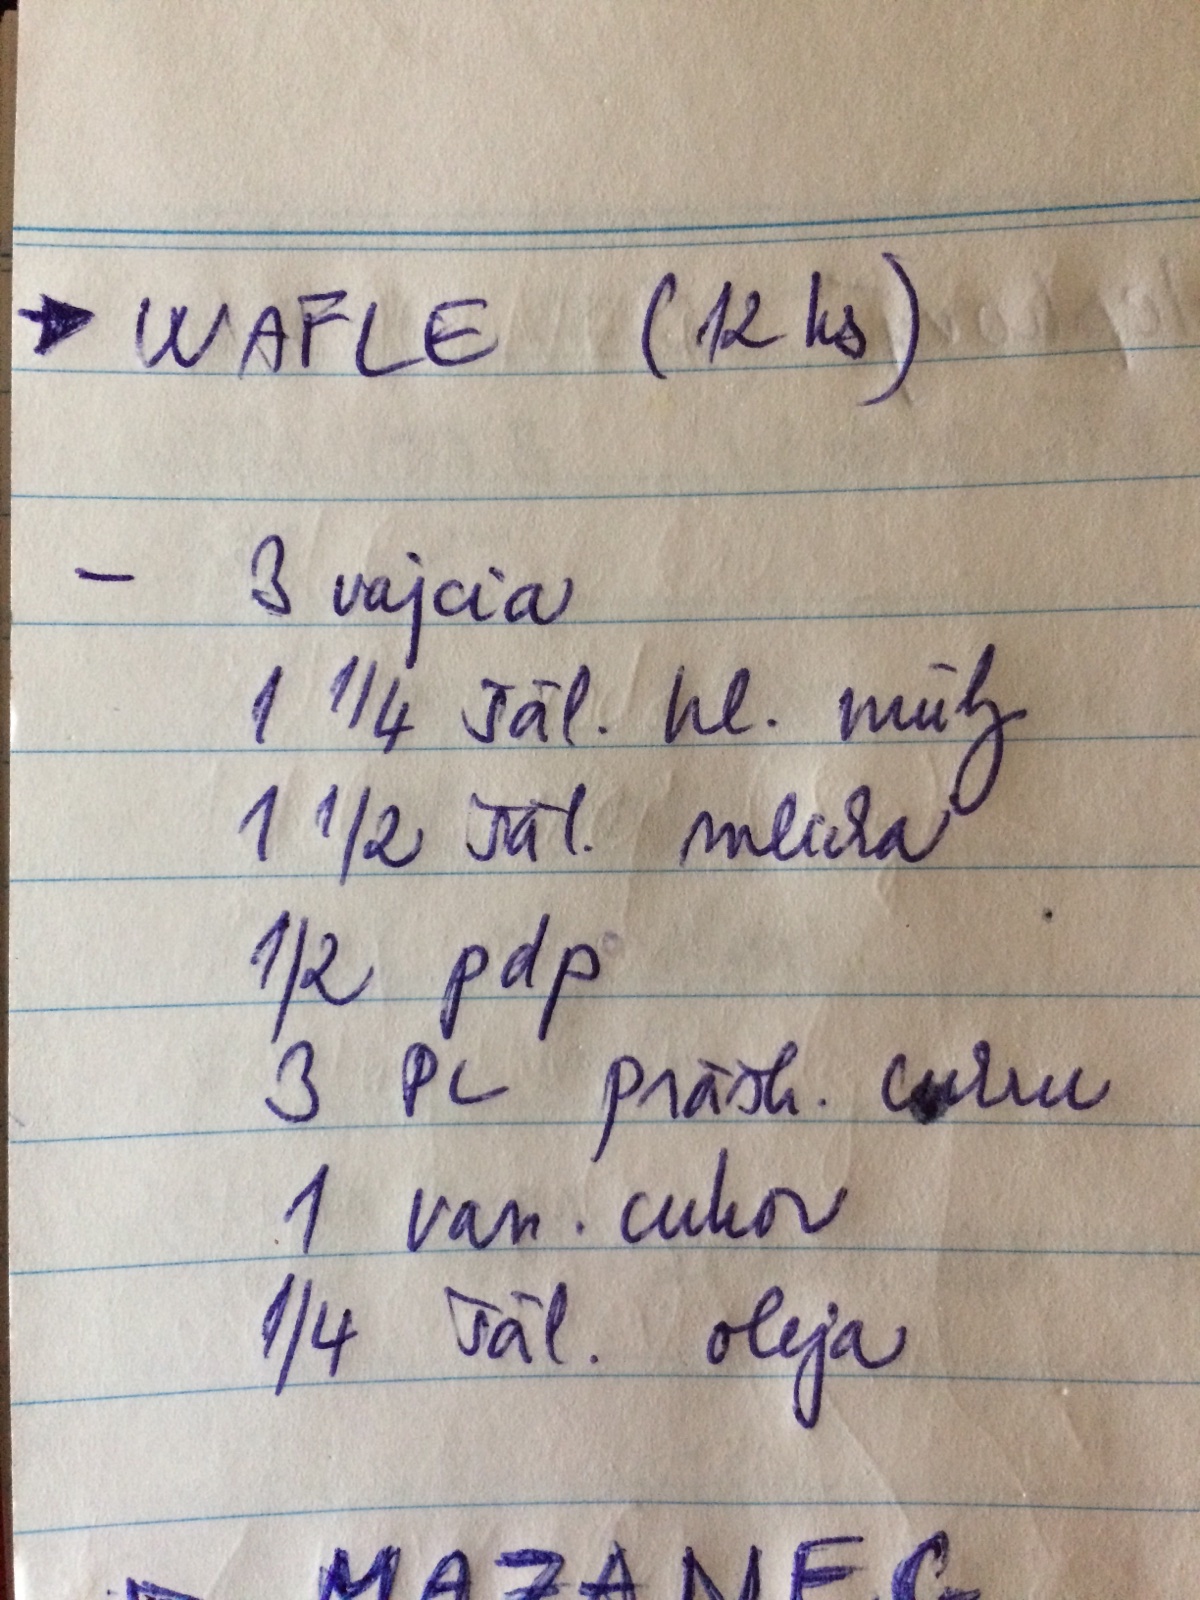 WAFLE (12 ks)
- 3 vajcia
1 1/4 šál. hl. múky
1 1/2 šál. mlieka
1/2 pdp
3 PL prášk. cukru
1 van. cukor
1/4 šál. oleja
MAZANEC